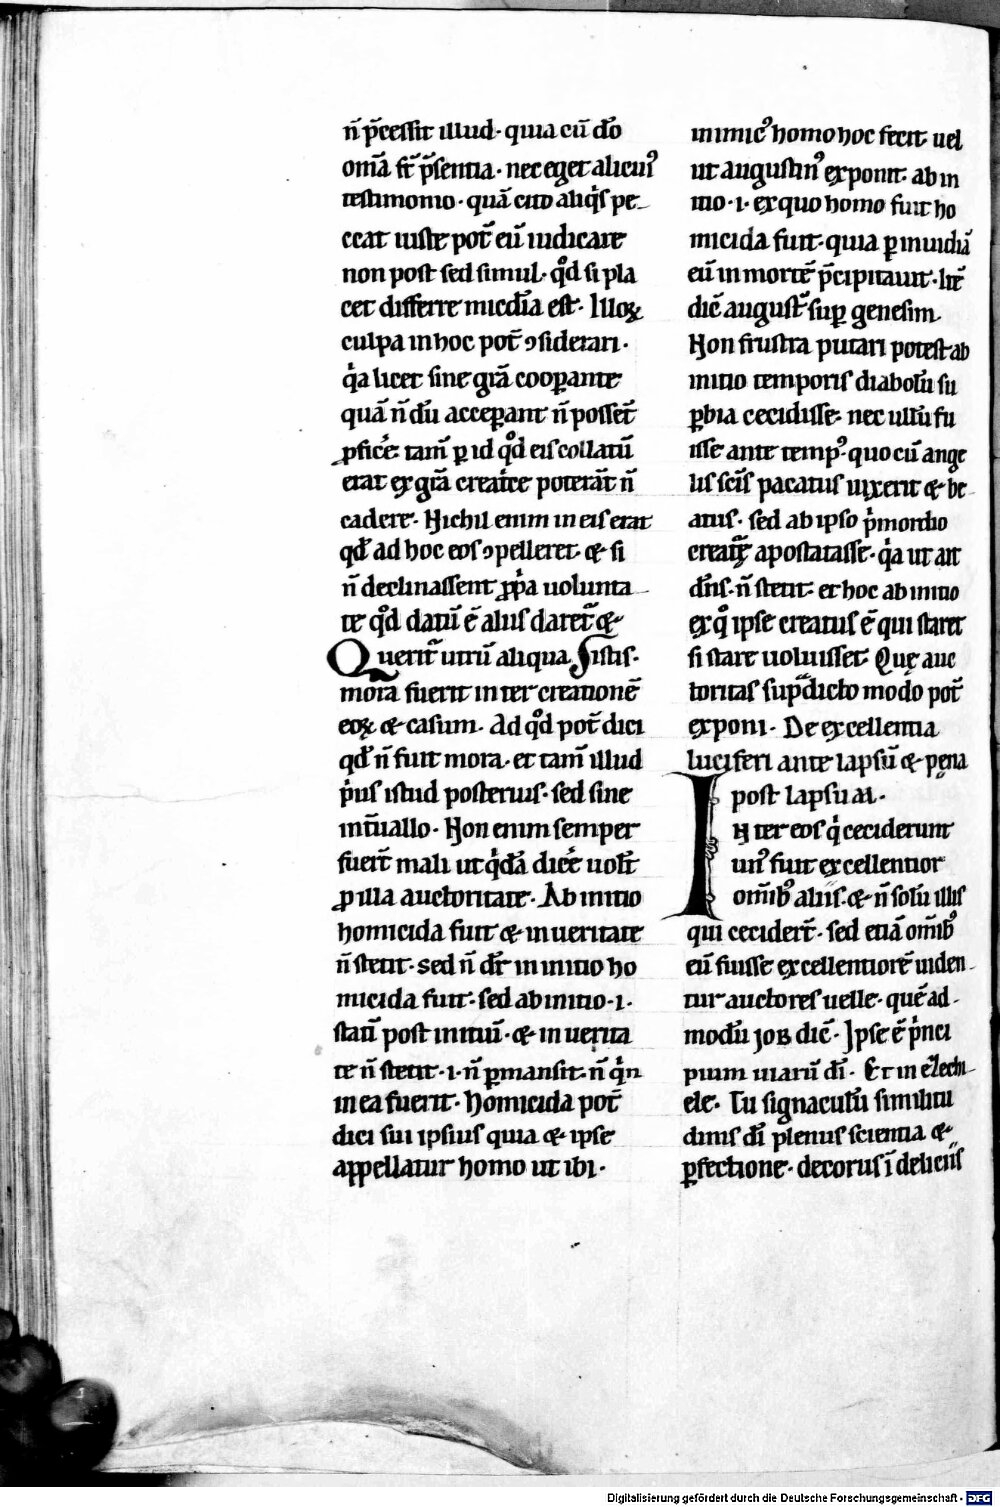 n̄ p̄cessit illud· quia cū dō
om̄ia sr̄ p̄sentia· nec eget alicui᷒
testimonio· quā cito aliq͛s pe-
ccat iuste pot̄ eū iudicare
non post sed simul· qd̄ si pla
cet differre mic̄dia est· Illoꝝ
culpa in hoc pot̄ ꝯsiderari·
q͛a licet sine grā cooꝑante
quā n̄ dū acceꝑant n̄ possēt
ꝓfic̄e tam̄ ꝑ id qd̄ eis collatū
erat ex grā creat͛ce poterāt n̄
cadere· Nichil enim in eis erat
qd̄ ad hoc eos ꝯpelleret· & si
n̄ declinassent ꝓp͛a uolunta-
te qd̄ datū ē aliis daret̄ &
Querit̄ utrū aliqua Si istis·
mora fuerit inter creationē
eoꝝ & casum· Ad qd̄ pot̄ dici
qd̄ n̄ fuit mora· et tam̄ illud
p͛us istud posterius· sed sine
int̄uallo· Non enim semper
fuer̄t mali ut q͛dā dic̄e uol̄t
ꝓ illa auctoritate· Ab initio
homicida fuit & in ueritate
n̄ stetit· sed n̄ dr̄ in initio ho
micida fuit· sed ab initio· i·
stati᷒ post initiū· & in uerita
te n̄ stetit· i· n̄ ꝑmansit· n̄ q͛n
in ea fuerit· Homicida pot̄
dici sui ipsius quia & ipse
appellatur homo ut ibi·
inimic᷒ homo hoc fecit uel
ut augustin᷒ exponit· ab in
itio· i· ex quo homo fuit ho
micida fuit· quia ꝑ inuidiā
eū in mortē p̄cipitauit· Itē
dic̄ august̄ suꝑ genesim·
Non frustra putari potest ab
initio temporis diabolū su
ꝑbia cecidisse· nec ullū fu
isse ante temp᷒ quo cū ange
lis sc̄is pacatus uixerit & be-
atus· sed ab ipso p͛mordio
creat͛e apostatasse· q͛a ut ait
dn̄s· n̄ stetit· et hoc ab initio
ex qͦ ipse creatus ē qui staret
si stare uoluisset· Quę auc
toritas sup̄dicto modo pot̄
exponi· De excellentia
luciferi ante lapsū & pęna
post lapsum·
Inter eos q͛ ceciderunt
un᷒ fuit excellentior
om̄ib᷒ aliis· & n̄ solū illis
qui cecider̄t· sed etiā om̄ib᷒
eū fuisse excellentiorē uiden-
tur auctores uelle· quē ad-
modū job dic̄· Ipse ē p͛nci
pium uiarū dī· Et in ezechi-
ele· Tu signaculū similitu
dinis dī plenus scientia &
ꝑfectione· decorus ī deliciis
Digitalisierung gefördert durch die Deutsche Forschungsgemeinschaft - DFG